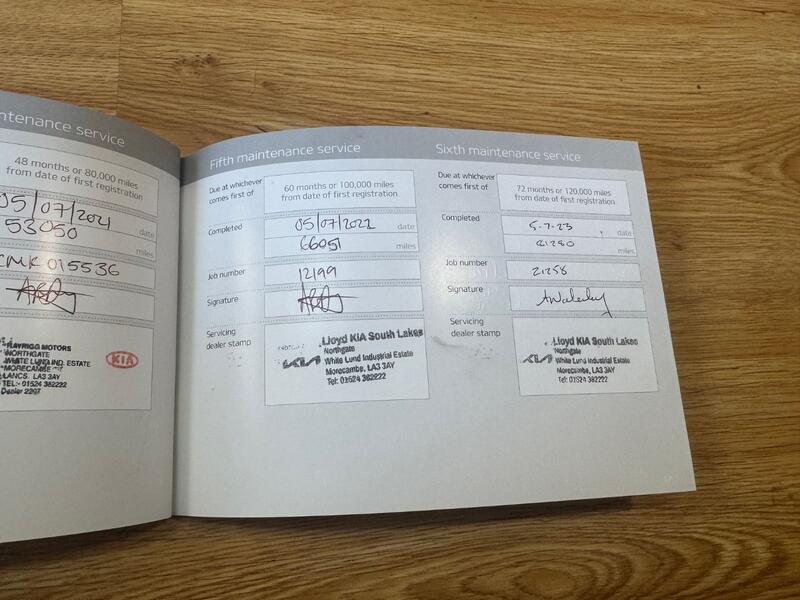 ntenance service
48 months or 80,000 miles
from date of first registration
05/07/2021
date
53050
miles
015536
MOTORS
NORTHGATE
WHITE LUND IND. ESTATE
MORECAMBE
LANCS. LA3 3AY
TEL:- 01524 382222
Dealer
KIA
Fifth maintenance service
Due at whichever
comes first of
60 months or 100,000 miles
from date of first registration
Completed
05/07/2022
date
66051
miles
Job number
12199
Signature
Servicing
dealer stamp
Lloyd KIA South Lakes
Northgate
White Lund Industrial Estate
Morecambe, LA3 3AY
Tel: 01524 382222
KIA
Sixth maintenance service
Due at whichever
comes first of
72 months or 120,000 miles
from date of first registration
Completed
5-7-23
date
81280
miles
Job number
21258
Signature
Servicing
dealer stamp
Lloyd KIA South Lakes
Northgate
White Lund Industrial Estate
Morecambe, LA3 3AY
Tel: 01524 382222
KIA